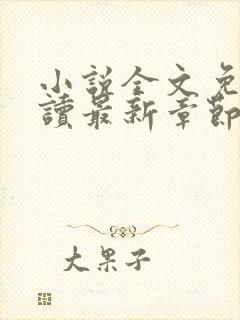 小說全文免
讀最新章節
大果子